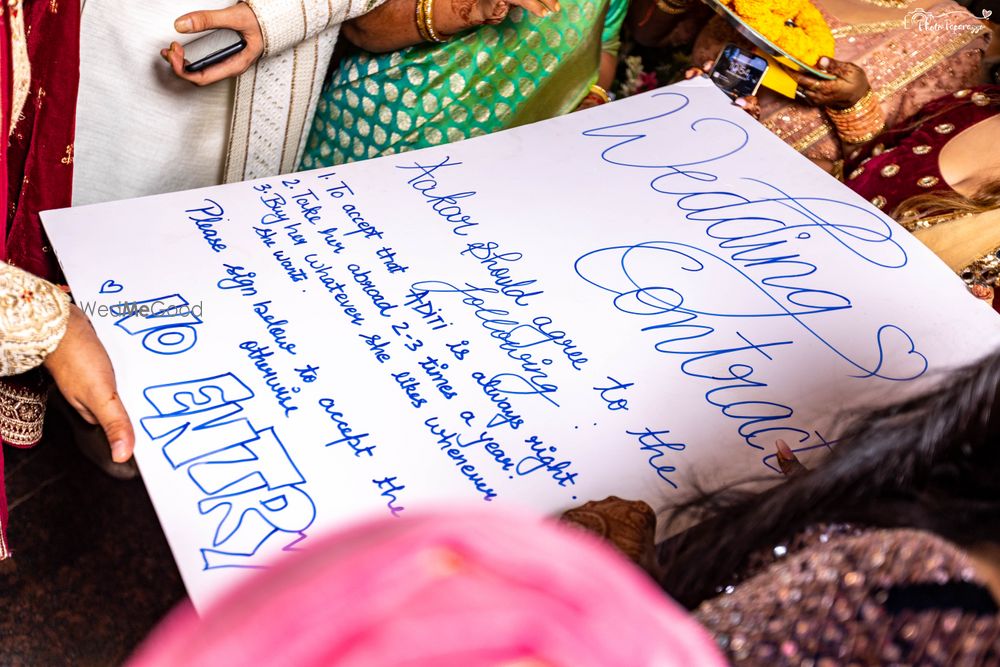 Wedding
Contract
Aakar should agree to the
following :
1. To accept that ADITI is always right.
2. Take her abroad 2-3 times a year.
3. Buy her whatever she likes whenever
she wants.
Please sign below to accept the
otherwise
NO
ENTRY
WedMeGood